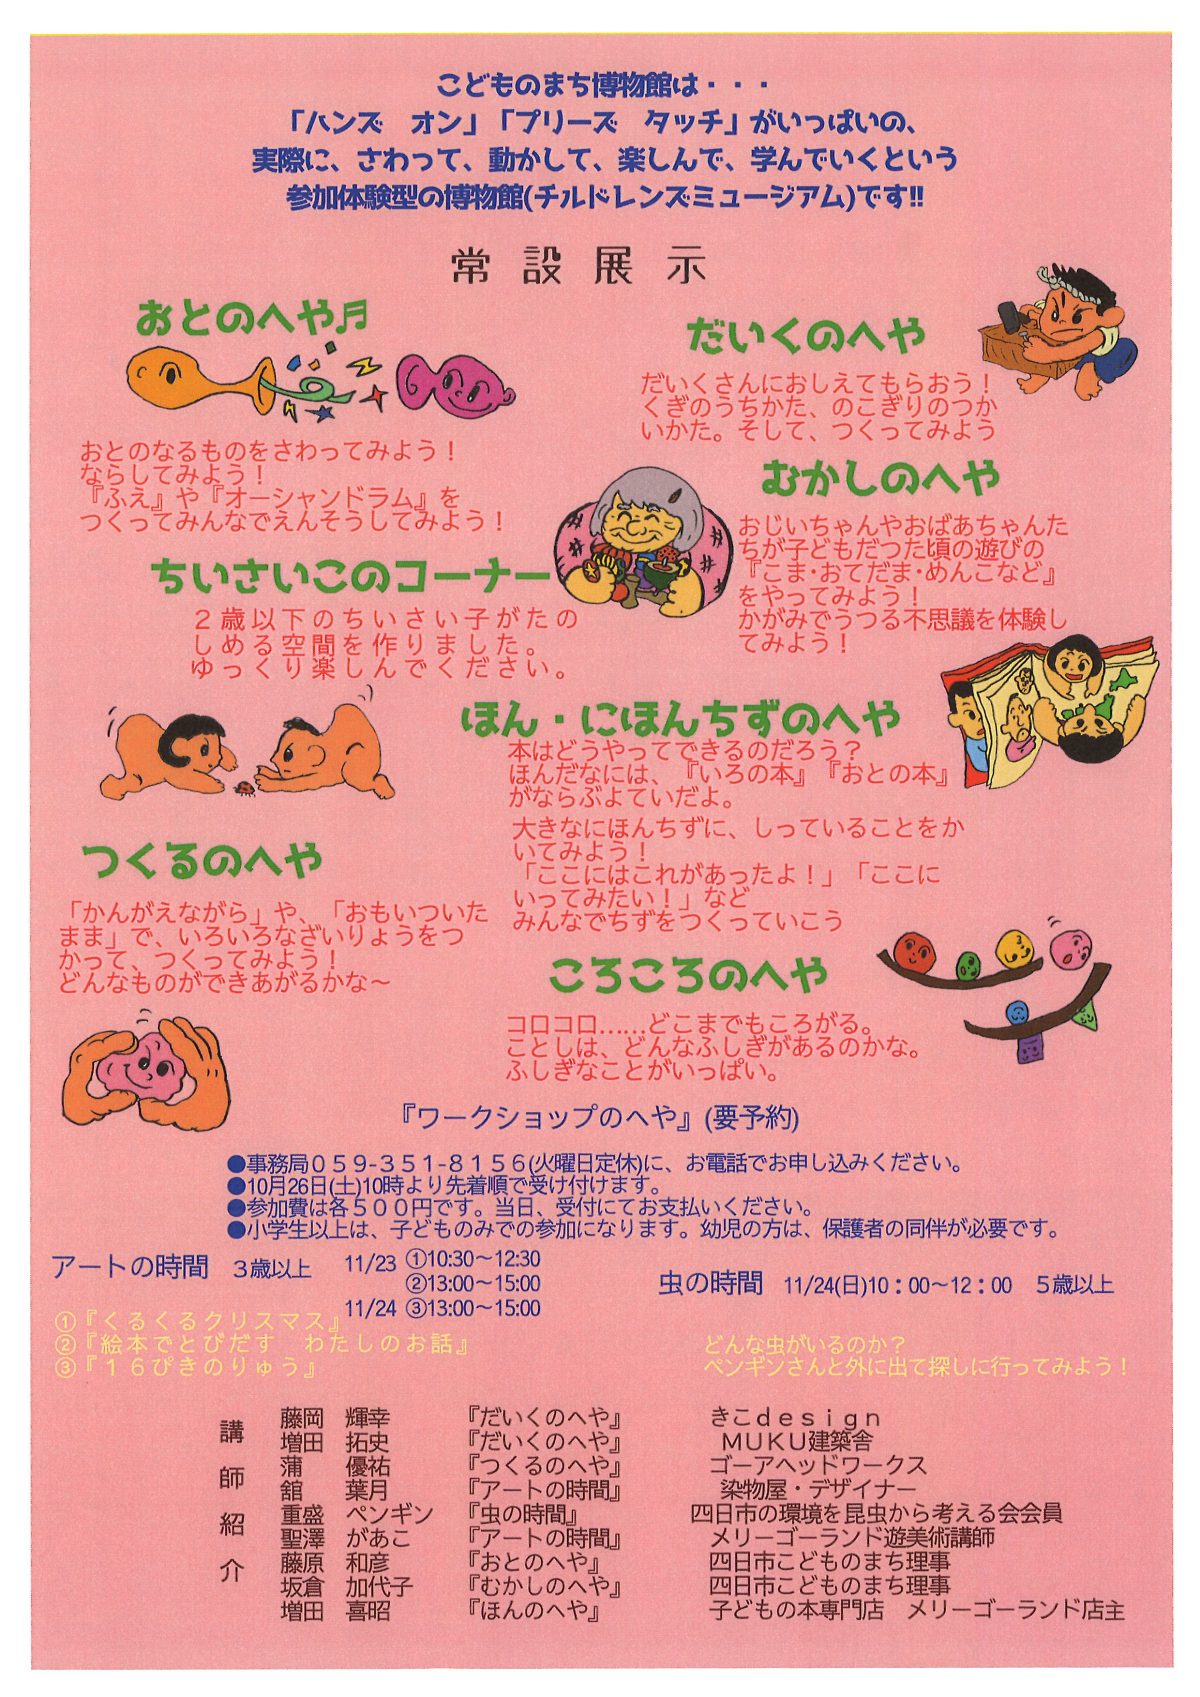 こどものまち博物館は・・・
「ハンズ　オン」「プリーズ　タッチ」がいっぱいの、
実際に、さわって、動かして、楽しんで、学んでいくという
参加体験型の博物館(チルドレンズミュージアム)です!!
常設展示
おとのへや♬
おとのなるものをさわってみよう！
ならしてみよう！
『ふえ』や『オーシャンドラム』を
つくってみんなでえんそうしてみよう！
だいくのへや
だいくさんにおしえてもらおう！
くぎのうちかた、のこぎりのつか
いかた。そして、つくってみよう
むかしのへや
おじいちゃんやおばあちゃんた
ちが子どもだつた頃の遊びの
『こま･おてだま･めんこなど』
をやってみよう！
かがみでうつる不思議を体験し
てみよう！
ちいさいこのコーナー
２歳以下のちいさい子がたの
しめる空間を作りました。
ゆっくり楽しんでください。
ほん・にほんちずのへや
本はどうやってできるのだろう？
ほんだなには、『いろの本』『おとの本』
がならぶよていだよ。
大きなにほんちずに、しっていることをか
いてみよう！
「ここにはこれがあったよ！」「ここに
いってみたい！」など
みんなでちずをつくっていこう
つくるのへや
「かんがえながら」や、「おもいついた
まま」で、いろいろなざいりょうをつ
かって、つくってみよう！
どんなものができあがるかな～
ころころのへや
コロコロ……どこまでもころがる。
ことしは、どんなふしぎがあるのかな。
ふしぎなことがいっぱい。
『ワークショップのへや』(要予約)
●事務局０５９-３５１-８１５６(火曜日定休)に、お電話でお申し込みください。
●10月26日(土)10時より先着順で受け付けます。
●参加費は各５００円です。当日、受付にてお支払いください。
●小学生以上は、子どものみでの参加になります。幼児の方は、保護者の同伴が必要です。
アートの時間　３歳以上　11/23 ①10:30～12:30
②13:00～15:00
11/24 ③13:00～15:00
①『くるくるクリスマス』
②『絵本でとびだす　わたしのお話』
③『１６ぴきのりゅう』
虫の時間　11/24(日)10：00～12：00　５歳以上
どんな虫がいるのか？
ペンギンさんと外に出て探しに行ってみよう！
講師紹介
藤岡　輝幸　『だいくのへや』　きこｄｅｓｉｇｎ
増田　拓史　『だいくのへや』　ＭＵＫＵ建築舎
蒲　優祐　『つくるのへや』　ゴーアヘッドワークス
舘　葉月　『アートの時間』　染物屋・デザイナー
重盛　ペンギン　『虫の時間』　四日市の環境を昆虫から考える会会員
聖澤　があこ　『アートの時間』　メリーゴーランド遊美術講師
藤原　和彦　『おとのへや』　四日市こどものまち理事
坂倉　加代子　『むかしのへや』　四日市こどものまち理事
増田　喜昭　『ほんのへや』　子どもの本専門店　メリーゴーランド店主